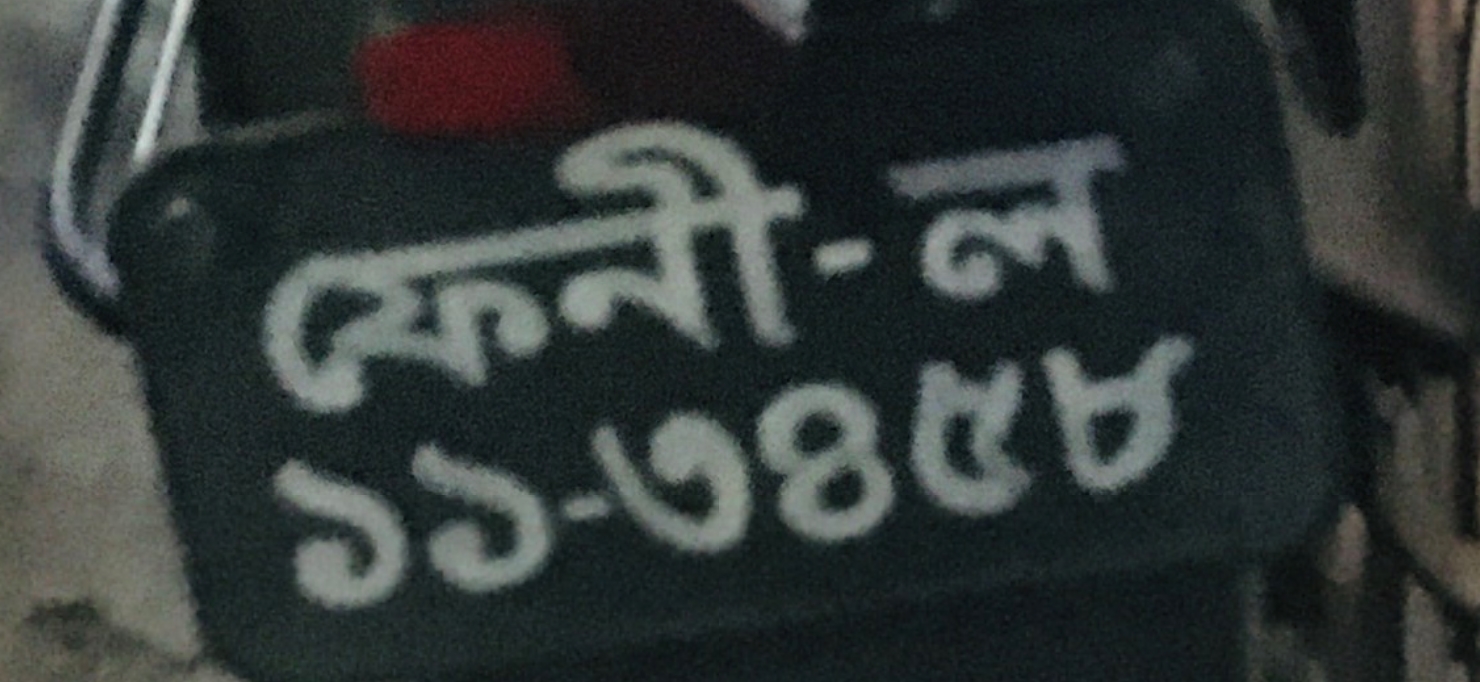 ফেনী-ল
১১-৩৪৫৮